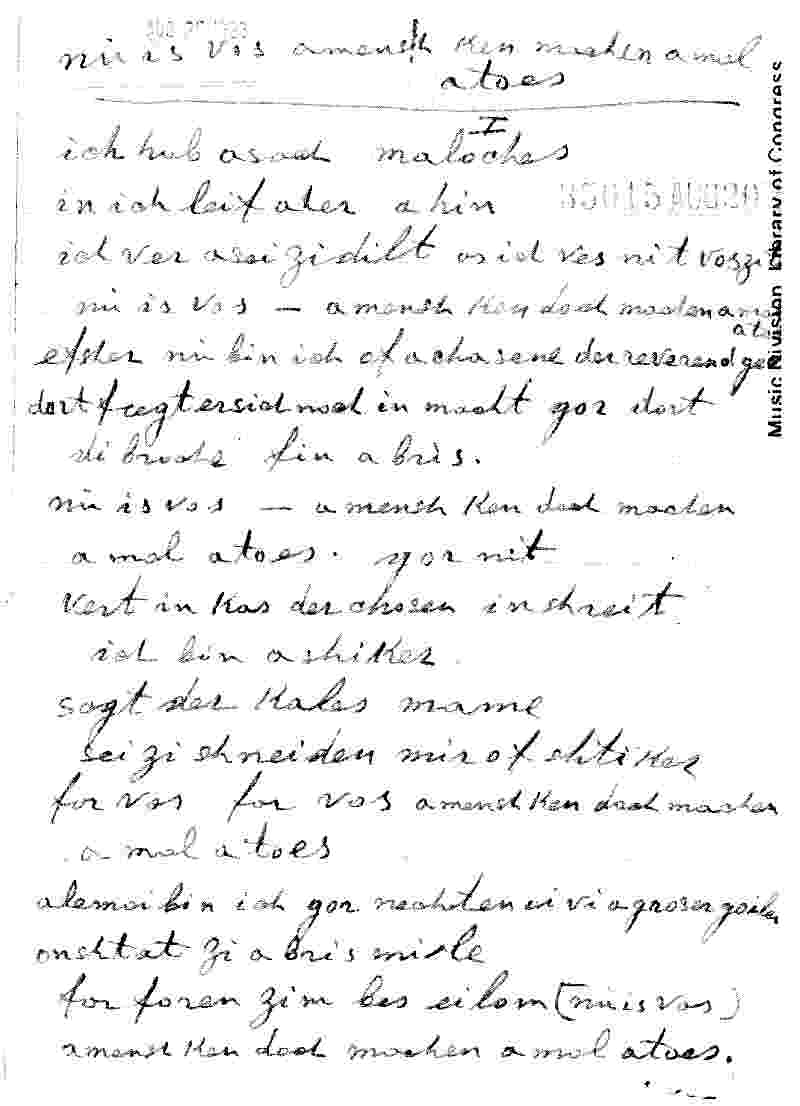 nu is vos a mensh ken machen a mol
a toes
I
ich hub asach maloches
in ich leif aher ahin
ich ver asei zidilt as ich ves nit vos zi
nu is vos — a mensh ken doch machen a
efsher nu bin ich of a chasene der reverend
dort fregt er sich noch in macht gor dort
di broche fin a bris.
nu is vos — a mensh ken doch machen
a mol a toes. gor nit
vert in kas der chosen in shreit
ich bin a shiker
sogt der kales mame
sei zi shneiden mir of shtiker
for vos for vos a mensh ken doch machen
a mol a toes
alemai bin ich gor nechten vi a groser
onshtat zi a bris mile
for foren zim bes eilom (nu is vos)
a mensh ken doch machen a mol a toes.
Music Division Library of Congress